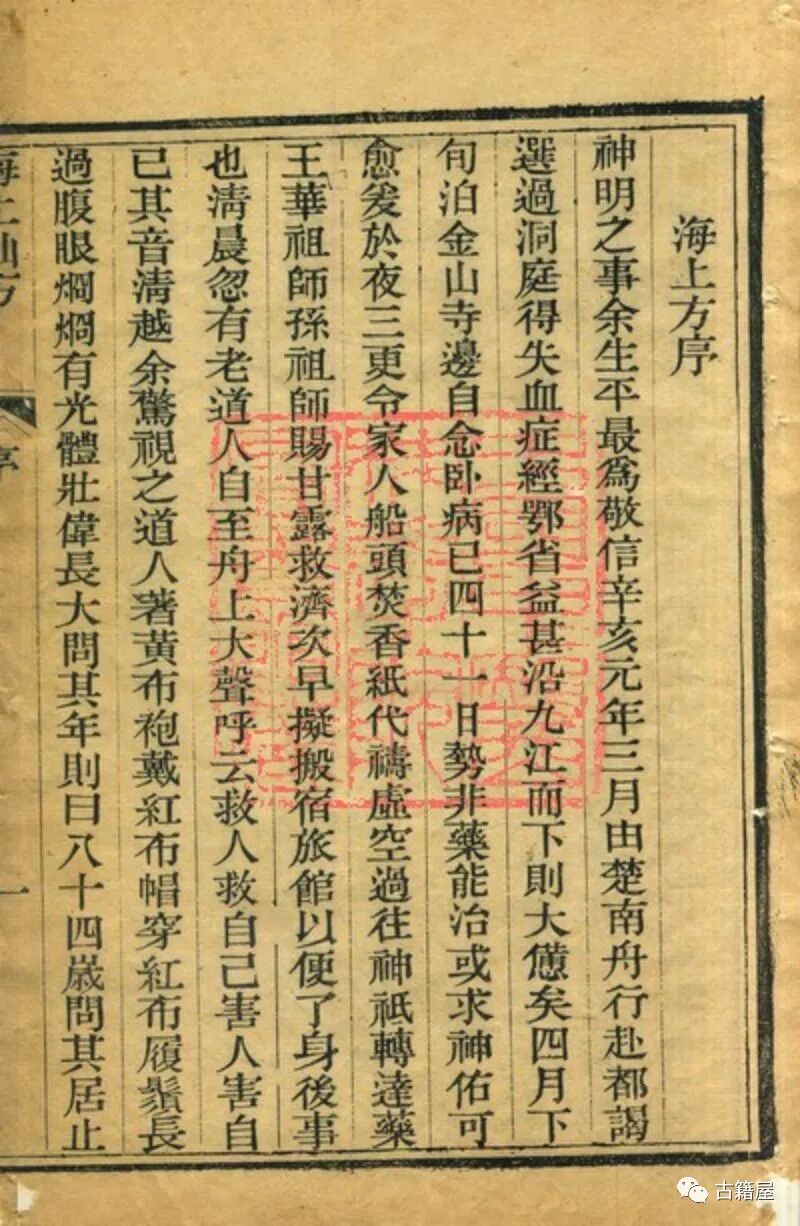 海上方序
神明之事余生平最爲敬信辛亥元年三月由楚南舟行赴都謁
選過洞庭得失血症經鄂省益甚沿九江而下則大憊矣四月下
旬泊金山寺邊自念卧病已四十一日勢非藥能治或求神佑可
愈爰於夜三更令家人船頭焚香紙代禱虛空過往神祇轉達藥
王華祖師孫祖師賜甘露救濟次早擬搬宿旅館以便了身後事
也淸晨忽有老道人自至舟上大聲呼云救人救自己害人害自
已其音淸越余驚視之道人著黃布袍戴紅布帽穿紅布履鬚長
過腹眼烱烱有光體壯偉長大問其年則曰八十四歲問其居止
海上仙方
序
一
古籍屋